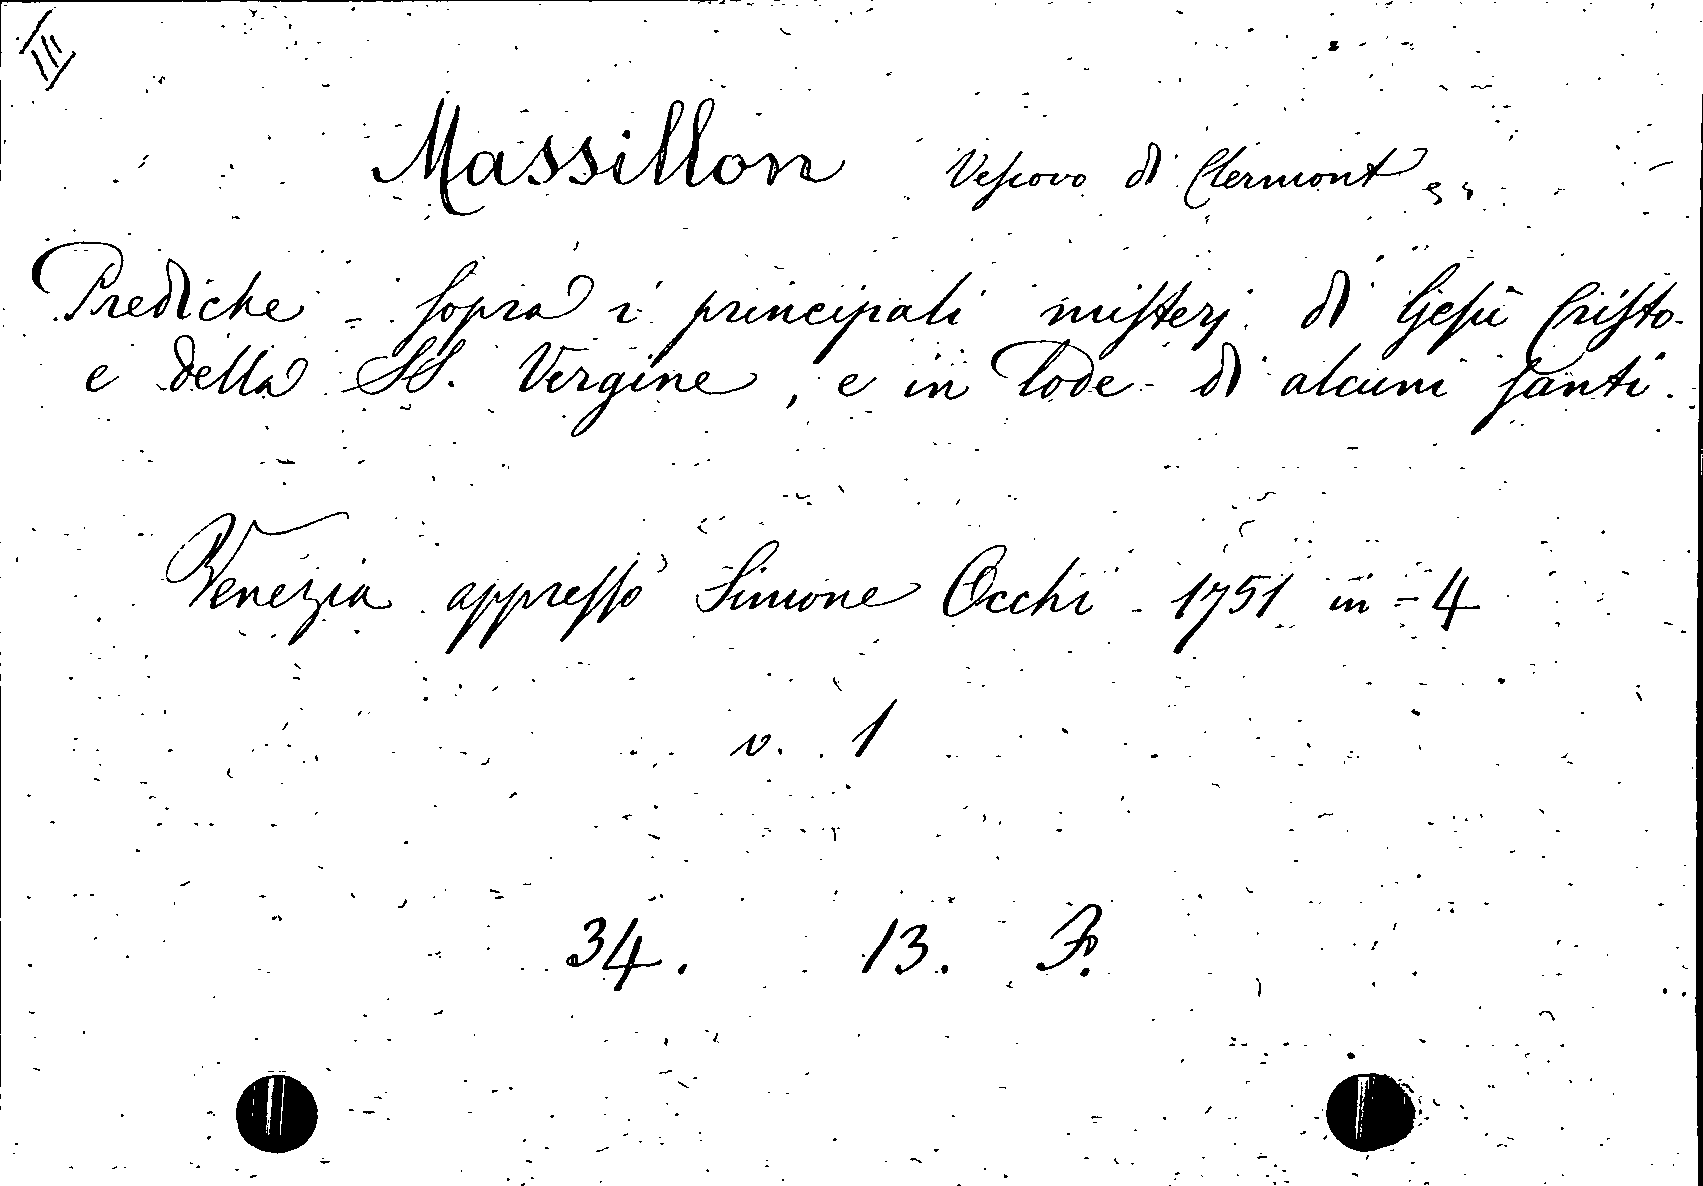 III
Massillon Vescovo di Clermont
Prediche - sopra i principali misterj di Gesù Cristo
e della SS. Vergine, e in lode di alcuni santi.
Venezia appresso Simone Occhi 1751 in - 4
v. 1
34. 13.